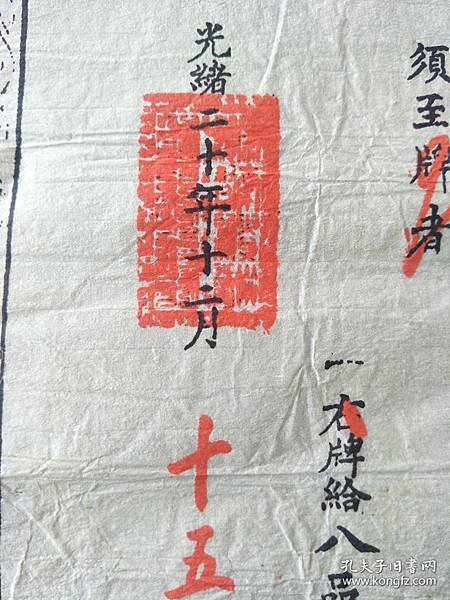 須至牌者
一右牌給八品
光緒二十年十二月
十五
孔夫子旧书网
www.kongfz.com